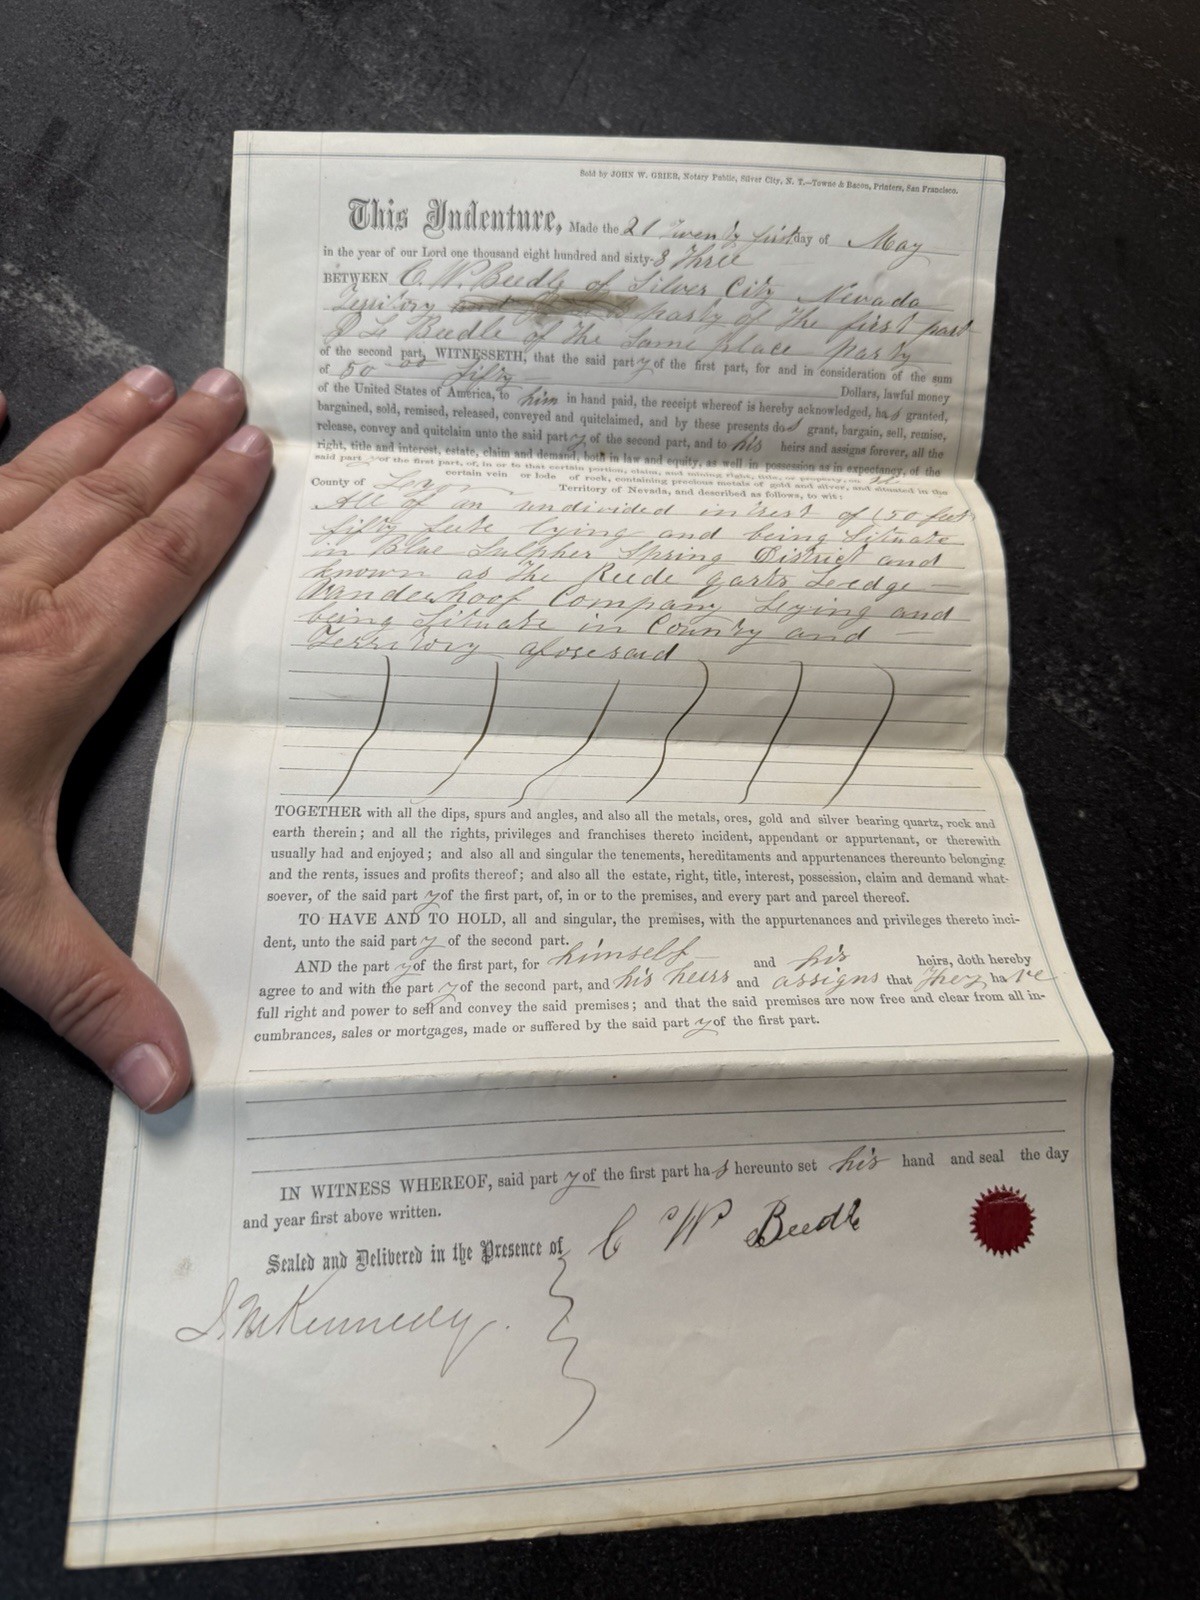 Sold by JOHN W. GRIER, Notary Public, Silver City, N. T.—Towne & Bacon, Printers, San Francisco.
This Indenture, Made the 21 Twenty first day of May
in the year of our Lord one thousand eight hundred and sixty-3 Three
BETWEEN C. W. Beedle of Silver City Nevada
Territory party of the first part
Beedle of the Same place party
of the second part, WITNESSETH, that the said party of the first part, for and in consideration of the sum
of 50 00 fifty Dollars, lawful money
of the United States of America, to him in hand paid, the receipt whereof is hereby acknowledged, has granted,
bargained, sold, remised, released, conveyed and quitclaimed, and by these presents does grant, bargain, sell, remise,
release, convey and quitclaim unto the said party of the second part, and to his heirs and assigns forever, all the
right, title and interest, estate, claim and demand, both in law and equity, as well in possession as in expectancy, of the
said party of the first part, of, in or to that certain portion, claim, and mining right, title, or property, on
certain vein or lode of rock, containing precious metals of gold and silver, and situated in the
County of Territory of Nevada, and described as follows, to wit:
All of an undivided intrest of (50 feet
fifty feete lying and being Situate
in Blue Sulpher Spring District and
known as the Reede qarts Ledge
Vanderhoof Company Leying and
being Situate in County and
Territory aforesaid
TOGETHER with all the dips, spurs and angles, and also all the metals, ores, gold and silver bearing quartz, rock and
earth therein; and all the rights, privileges and franchises thereto incident, appendant or appurtenant, or therewith
usually had and enjoyed; and also all and singular the tenements, hereditaments and appurtenances thereunto belonging
and the rents, issues and profits thereof; and also all the estate, right, title, interest, possession, claim and demand what-
soever, of the said party of the first part, of, in or to the premises, and every part and parcel thereof.
TO HAVE AND TO HOLD, all and singular, the premises, with the appurtenances and privileges thereto inci-
dent, unto the said party of the second part.
AND the party of the first part, for himself and his heirs, doth hereby
agree to and with the party of the second part, and his heirs and assigns that they have
full right and power to sell and convey the said premises; and that the said premises are now free and clear from all in-
cumbrances, sales or mortgages, made or suffered by the said party of the first part.
IN WITNESS WHEREOF, said party of the first part has hereunto set his hand and seal the day
and year first above written.
Sealed and Delivered in the Presence of C W Beedle
Kennedy.